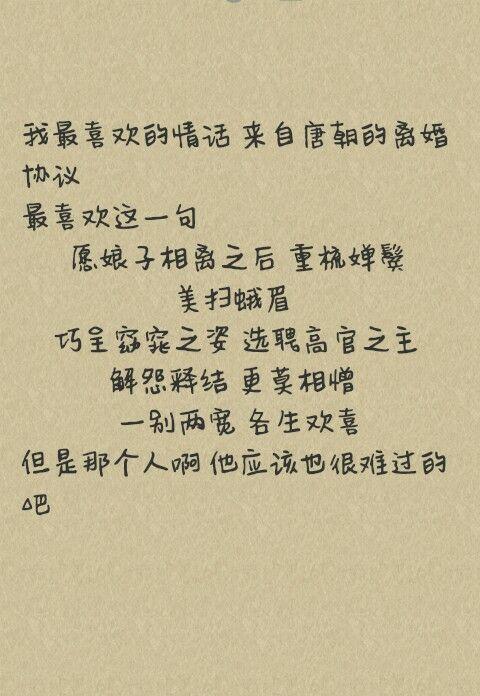 我最喜欢的情话 来自唐朝的离婚
协议
最喜欢这一句
愿娘子相离之后 重梳婵鬓
美扫蛾眉
巧呈窈窕之姿 选聘高官之主
解怨释结 更莫相憎
一别两宽 各生欢喜
但是那个人啊 他应该也很难过的
吧